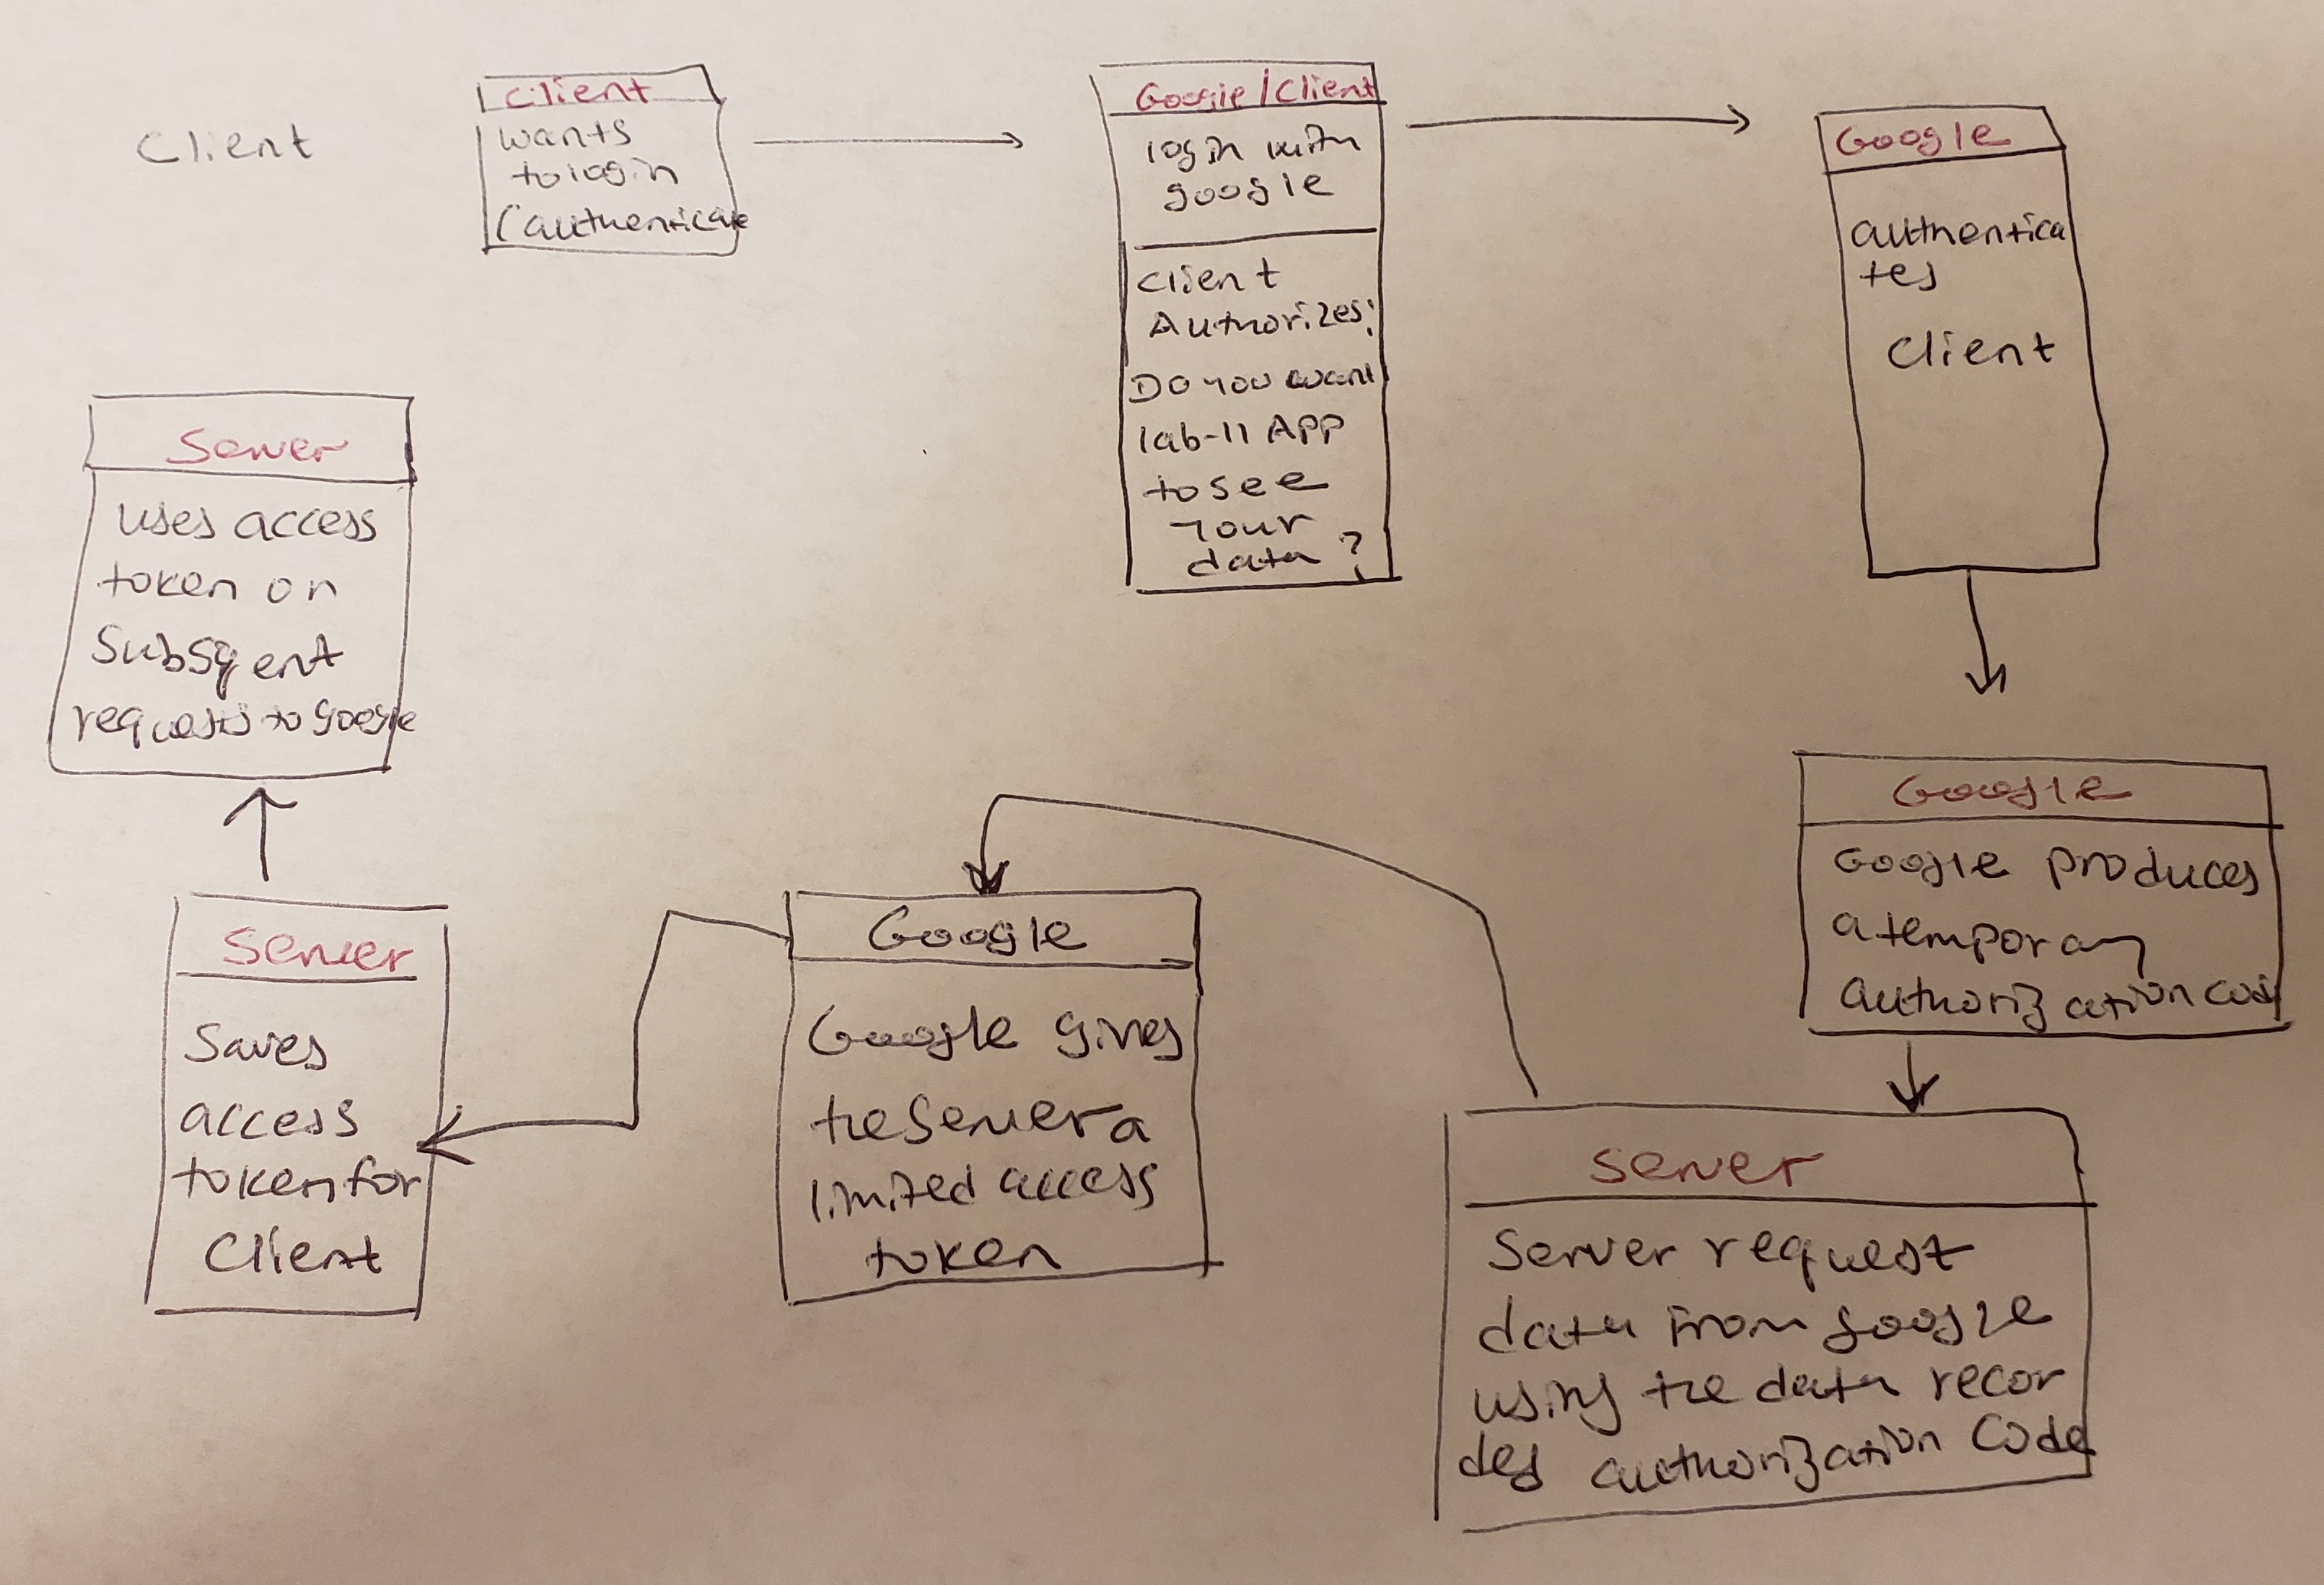 Client
Client
wants
to login
(authenticate
Google/Client
login with
google
Client
Authorizes:
Do you want
lab-11 App
to see
your
data?
Google
authentica
tes
Client
Google
Google produces
a temporary
authorization code
Server
Server request
data from google
using the data recor
ded authorization Code
Google
Google gives
the server a
limited access
token
Server
Saves
access
token for
Client
Server
uses access
token on
Subsqent
requests to google